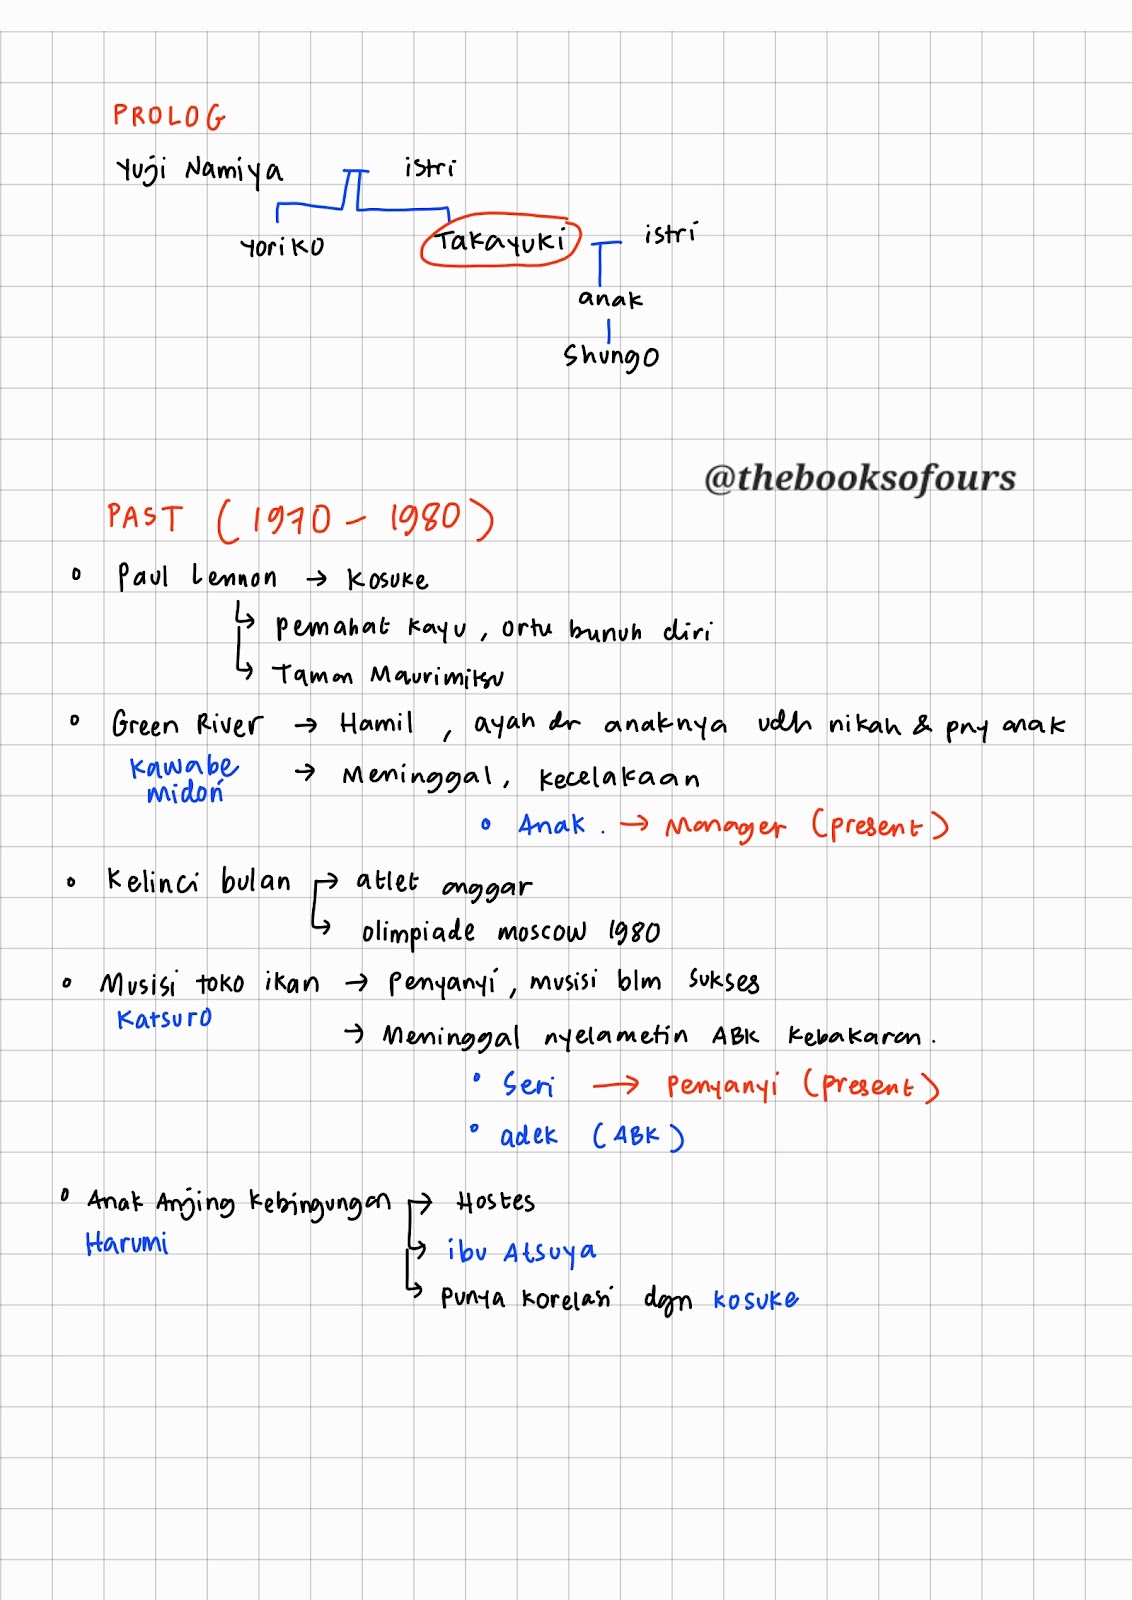 PROLOG
Yuji Namiya istri
Yoriko Takayuki istri
anak
Shungo
@thebooksofours
PAST (1970 - 1980)
Paul Lennon → Kosuke
pemahat kayu, ortu bunuh diri
Taman
Green River → Hamil, ayah dr anaknya udh nikah & pny anak
Kawabe → Meninggal, kecelakaan
midori
Anak. → Manager (present)
Kelinci bulan → atlet anggar
olimpiade moscow 1980
Musisi toko ikan → Penyanyi, musisi blm sukses
Katsuro
→ Meninggal nyelametin ABK kebakaran.
Seri → Penyanyi (present)
adek (ABK)
Anak Anjing Kebingungan → Hostes
Harumi
ibu Atsuya
punya korelasi dgn kosuke